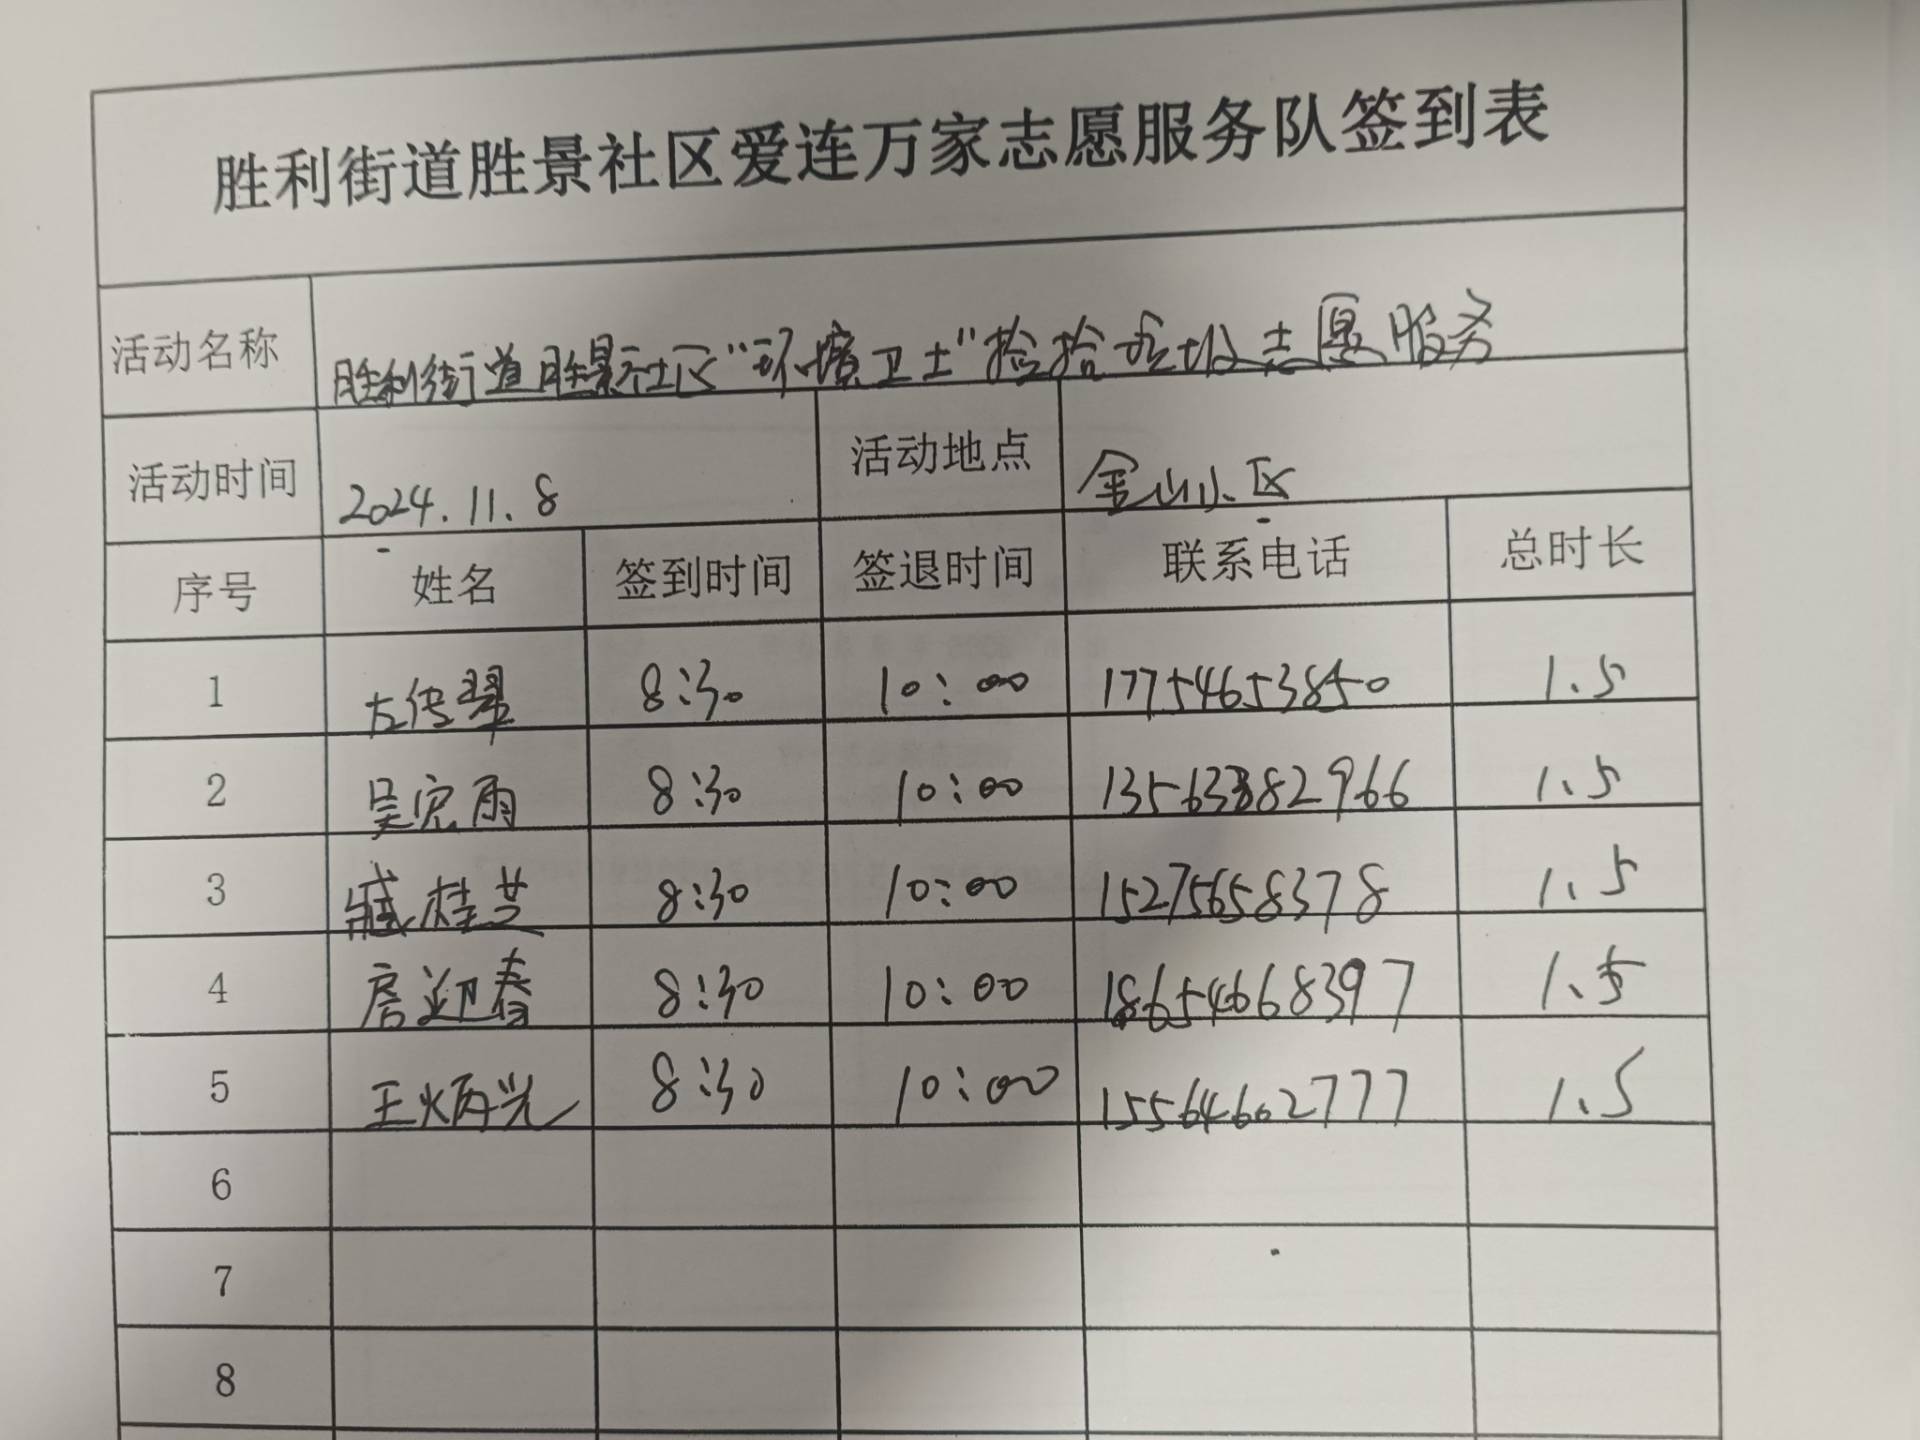 胜利街道胜景社区爱连万家志愿服务队签到表
活动名称 胜利街道胜景社区“环境卫士”捡拾垃圾志愿服务
活动时间 2024.11.8 活动地点 金山小区
序号 姓名 签到时间 签退时间 联系电话 总时长
1 左传翠 8:30 10:00 17754653850 1.5
2 吴宪雨 8:30 10:00 13563382966 1.5
3 臧桂芝 8:30 10:00 15275658378 1.5
4 房迎春 8:30 10:00 18654668397 1.5
5 王炳光 8:30 10:00 15564662777 1.5
6
7
8